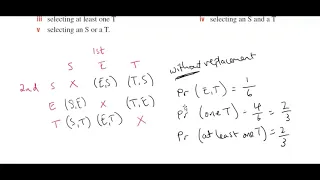 iii selecting at least one T
iv selecting an S and a T
v selecting an S or a T.
1st
S E T
2nd S X (E,S) (T,S)
E (S,E) X (T,E)
T (S,T) (E,T) X
without replacement
Pr (E,T) = 1/6
Pr (one T) - 4/6 = 2/3
Pr (at least one T) = 2/3